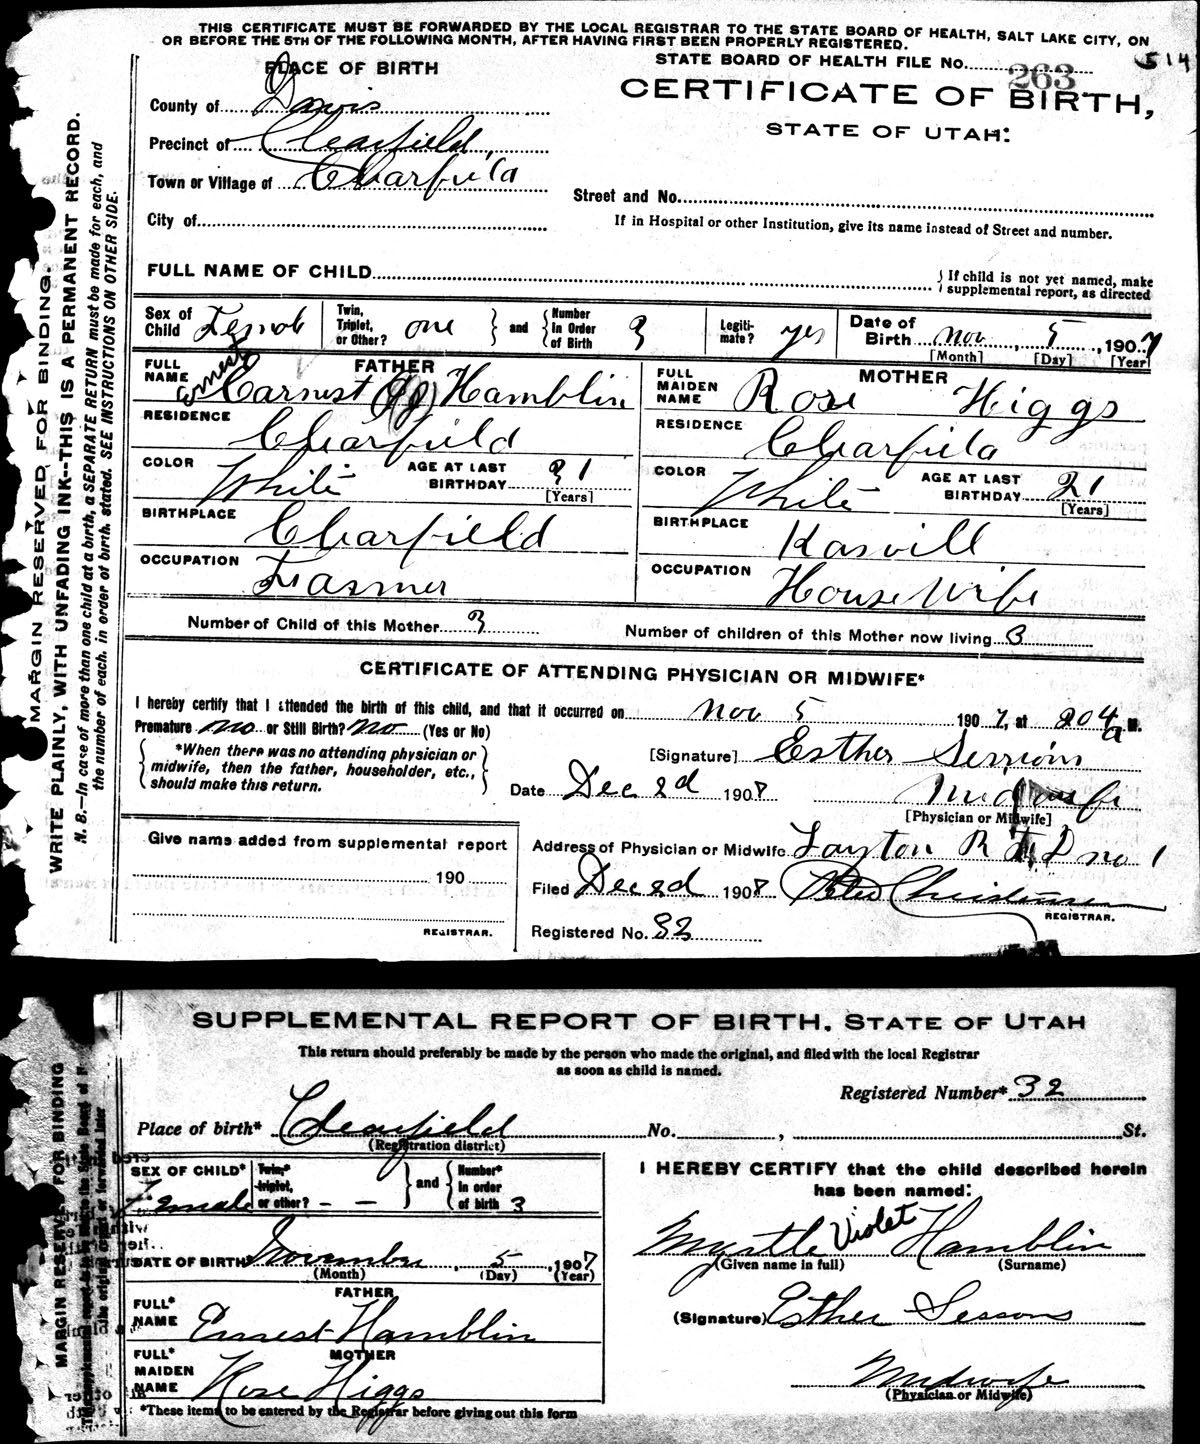 THIS CERTIFICATE MUST BE FORWARDED BY THE LOCAL REGISTRAR TO THE STATE BOARD OF HEALTH, SALT LAKE CITY, ON
OR BEFORE THE 5TH OF THE FOLLOWING MONTH, AFTER HAVING FIRST BEEN PROPERLY REGISTERED.
514
PLACE OF BIRTH
STATE BOARD OF HEALTH FILE No. 263
County of Davis
CERTIFICATE OF BIRTH,
STATE OF UTAH:
Precinct of Clearfield,
Town or Village of Clearfield
Street and No.
City of
If in Hospital or other Institution, give its name instead of Street and number.
FULL NAME OF CHILD
If child is not yet named, make
supplemental report, as directed
Sex of Child Femal
Twin, Triplet, or Other? one and Number In Order of Birth 3
Legiti- mate? yes
Date of Birth Nov 5, 1907
[Month] [Day] [Year]
FATHER
FULL NAME Earnest Hamblin
Ernest
MOTHER
FULL MAIDEN NAME Rose Higgs
RESIDENCE Clearfield
RESIDENCE Clearfield
COLOR White AGE AT LAST BIRTHDAY 31 [Years]
COLOR White AGE AT LAST BIRTHDAY 21 [Years]
BIRTHPLACE Clearfield
BIRTHPLACE Kasvill
OCCUPATION Farmer
OCCUPATION House Wife
Number of Child of this Mother 3
Number of children of this Mother now living 3
CERTIFICATE OF ATTENDING PHYSICIAN OR MIDWIFE*
I hereby certify that I attended the birth of this child, and that it occurred on Nov 5 1907, at 204 a M.
Premature no or Still Birth? no (Yes or No)
*When there was no attending physician or
midwife, then the father, householder, etc.,
should make this return.
[Signature] Esther Sessions
Date Dec 2d 1907 Midwife
[Physician or Midwife]
Give name added from supplemental report
190
REGISTRAR.
Address of Physician or Midwife Layton R F D no 1
Filed Dec 2d 1907 Peter Christensen
REGISTRAR.
Registered No. 32
MARGIN RESERVED FOR BINDING.
WRITE PLAINLY, WITH UNFADING INK--THIS IS A PERMANENT RECORD.
N. B.—In case of more than one child at a birth, a SEPARATE RETURN must be made for each, and
the number of each, in order of birth, stated. SEE INSTRUCTIONS ON OTHER SIDE.
SUPPLEMENTAL REPORT OF BIRTH, STATE OF UTAH
This return should preferably be made by the person who made the original, and filed with the local Registrar
as soon as child is named.
Registered Number* 32
Place of birth* Clearfield No. , St.
(Registration district)
SEX OF CHILD* Female
Twin,* triplet, or other? – – and Number* In order of birth 3
DATE OF BIRTH November 5, 1907
(Month) (Day) (Year)
FATHER
FULL* NAME Ernest Hamblin
MOTHER
FULL* MAIDEN NAME Rose Higgs
*These items to be entered by the Registrar before giving out this form
I HEREBY CERTIFY that the child described herein
has been named:
Myrtle Violet Hamblin
(Given name in full) (Surname)
(Signature) Esther Sessons
Midwife
(Physician or Midwife)
MARGIN RESERVED FOR BINDING